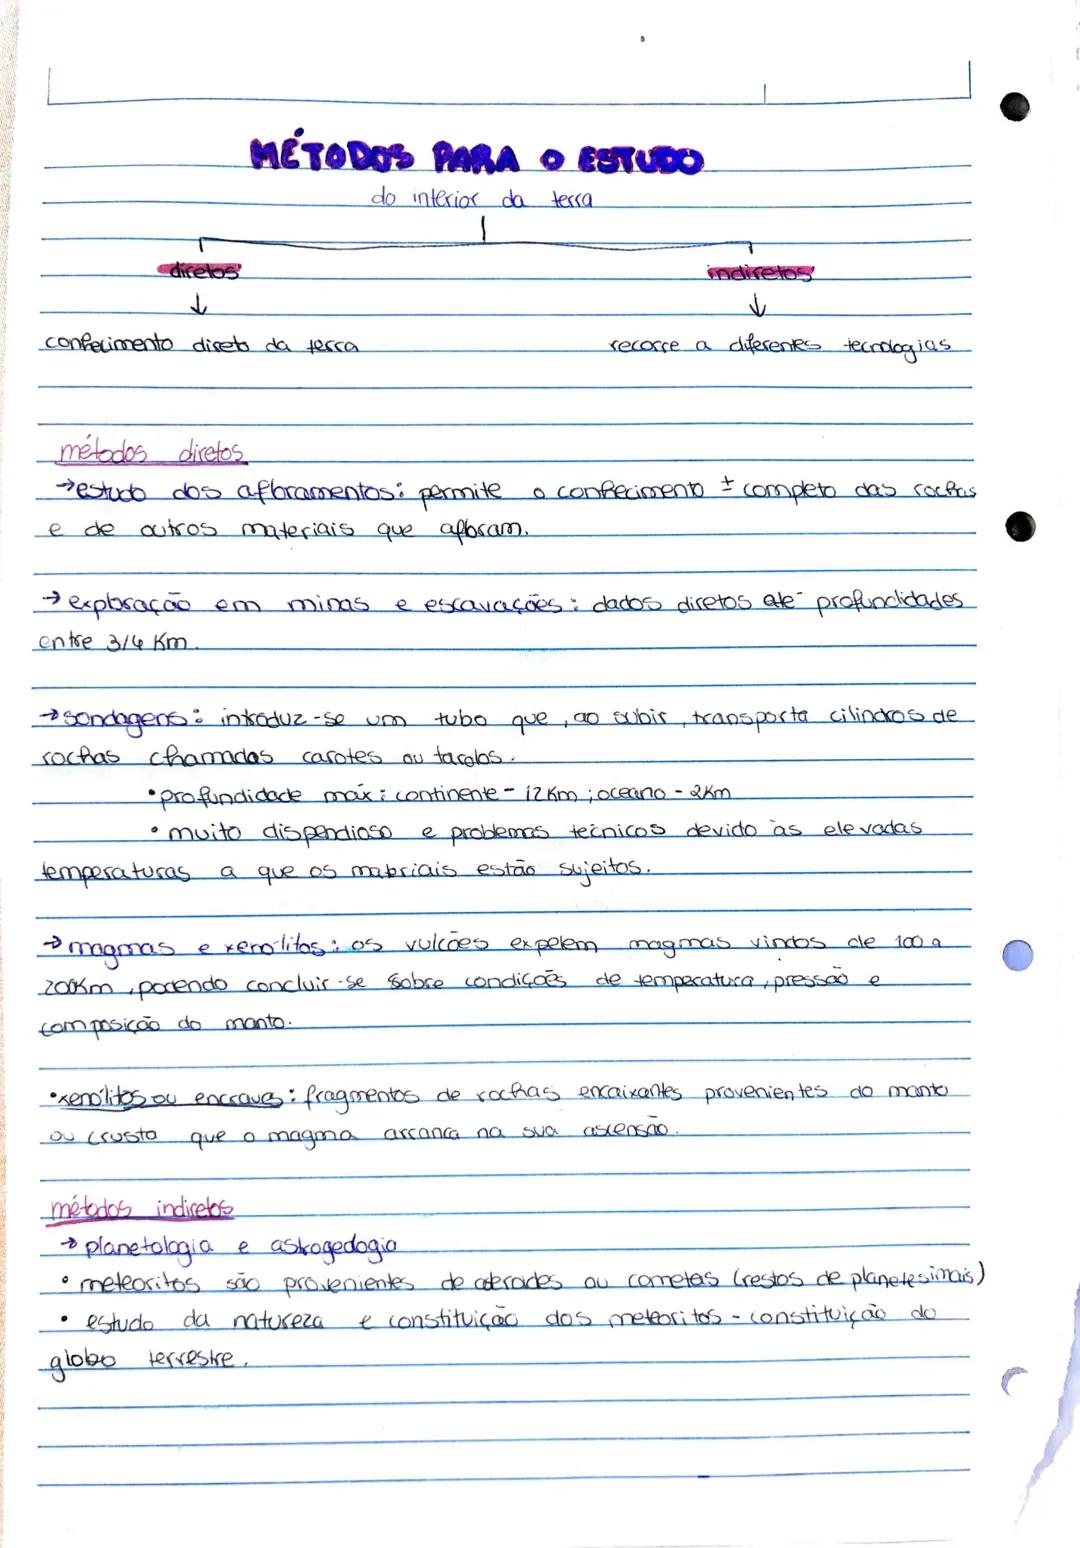 MÉTODOS PARA O ESTUDO
do interior da terra
diretos indiretos
↓ ↓
conhecimento direto da terra recorre a diferentes tecnologias
métodos diretos
→estudo dos afloramentos: permite o conhecimento ± completo das rochas
e de outros materiais que afloram.
→ exploração em minas e escavações: dados diretos até profundidades
entre 3/4 Km.
→ sondagens: introduz-se um tubo que, ao subir, transporta cilindros de
rochas chamadas carotes ou tarolos.
•profundidade máx: continente - 12Km; oceano - 2Km
• muito dispendioso e problemas técnicos devido às elevadas
temperaturas a que os materiais estão sujeitos.
→ magmas e xenólitos: os vulcões expelem magmas vindos de 100 a
200Km, podendo concluir-se sobre condições de temperatura, pressão e
composição do manto.
•xenólitos ou encraves: fragmentos de rochas encaixantes provenientes do manto
ou crusta que o magma arranca na sua ascensão.
métodos indiretos
→ planetologia e astrogeologia
• meteoritos são provenientes de asteroides ou cometas (restos de planetesimais)
• estudo da natureza e constituição dos meteoritos - constituição do
globo terrestre.